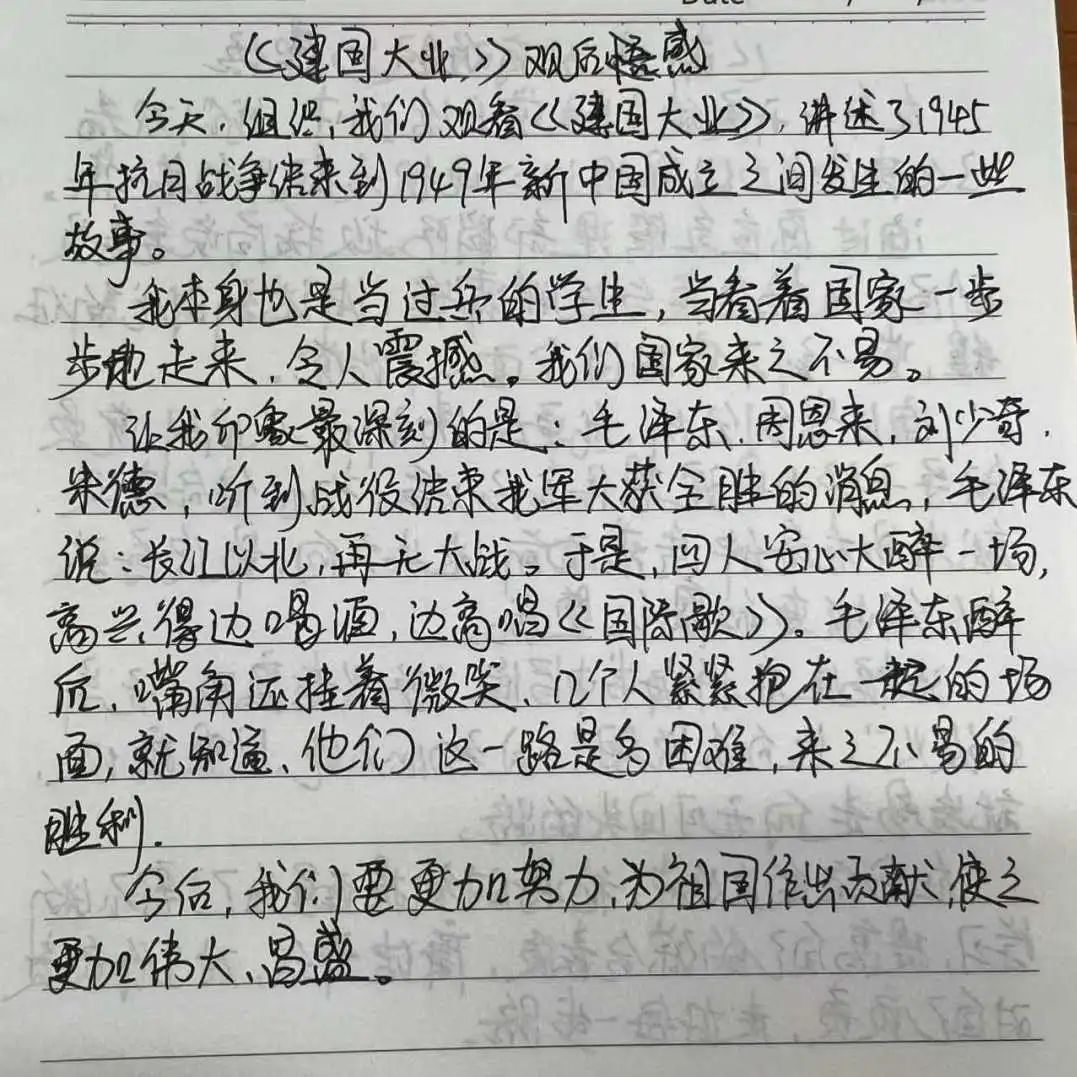 Date
《建国大业》观后感
今天,组织,我们观看《建国大业》,讲述了1945
年抗日战争结束到1949年新中国成立之间发生的一些
故事。
我本身也是当过兵的学生,当看着国家一步
步地走来,令人震撼。我们国家来之不易。
让我印象最深刻的是:毛泽东、周恩来、刘少奇、
朱德,听到战役结束我军大获全胜的消息,毛泽东
说:长江以北,再无大战。于是,四人安心大醉一场,
高兴得边喝酒,边高唱《国际歌》。毛泽东醉
后,嘴角还挂着微笑、几个人紧紧抱在一起的场
面,就知道、他们这一路是多困难,来之不易的
胜利.
今后,我们要更加努力,为祖国作出贡献,使之
更加伟大、昌盛。